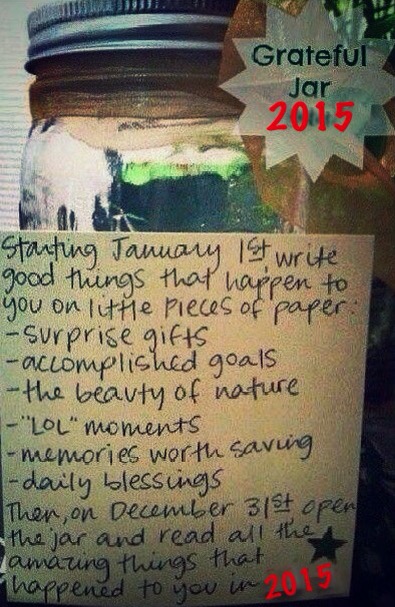 Grateful
Jar
2015
Starting January 1st, write
good things that happen to
you on little pieces of paper:
-surprise gifts
-accomplished goals
-the beauty of nature
-"LOL" moments
-memories worth saving
-daily blessings
Then, on December 31st open
the jar and read all the
amazing things that
happened to you in 2015